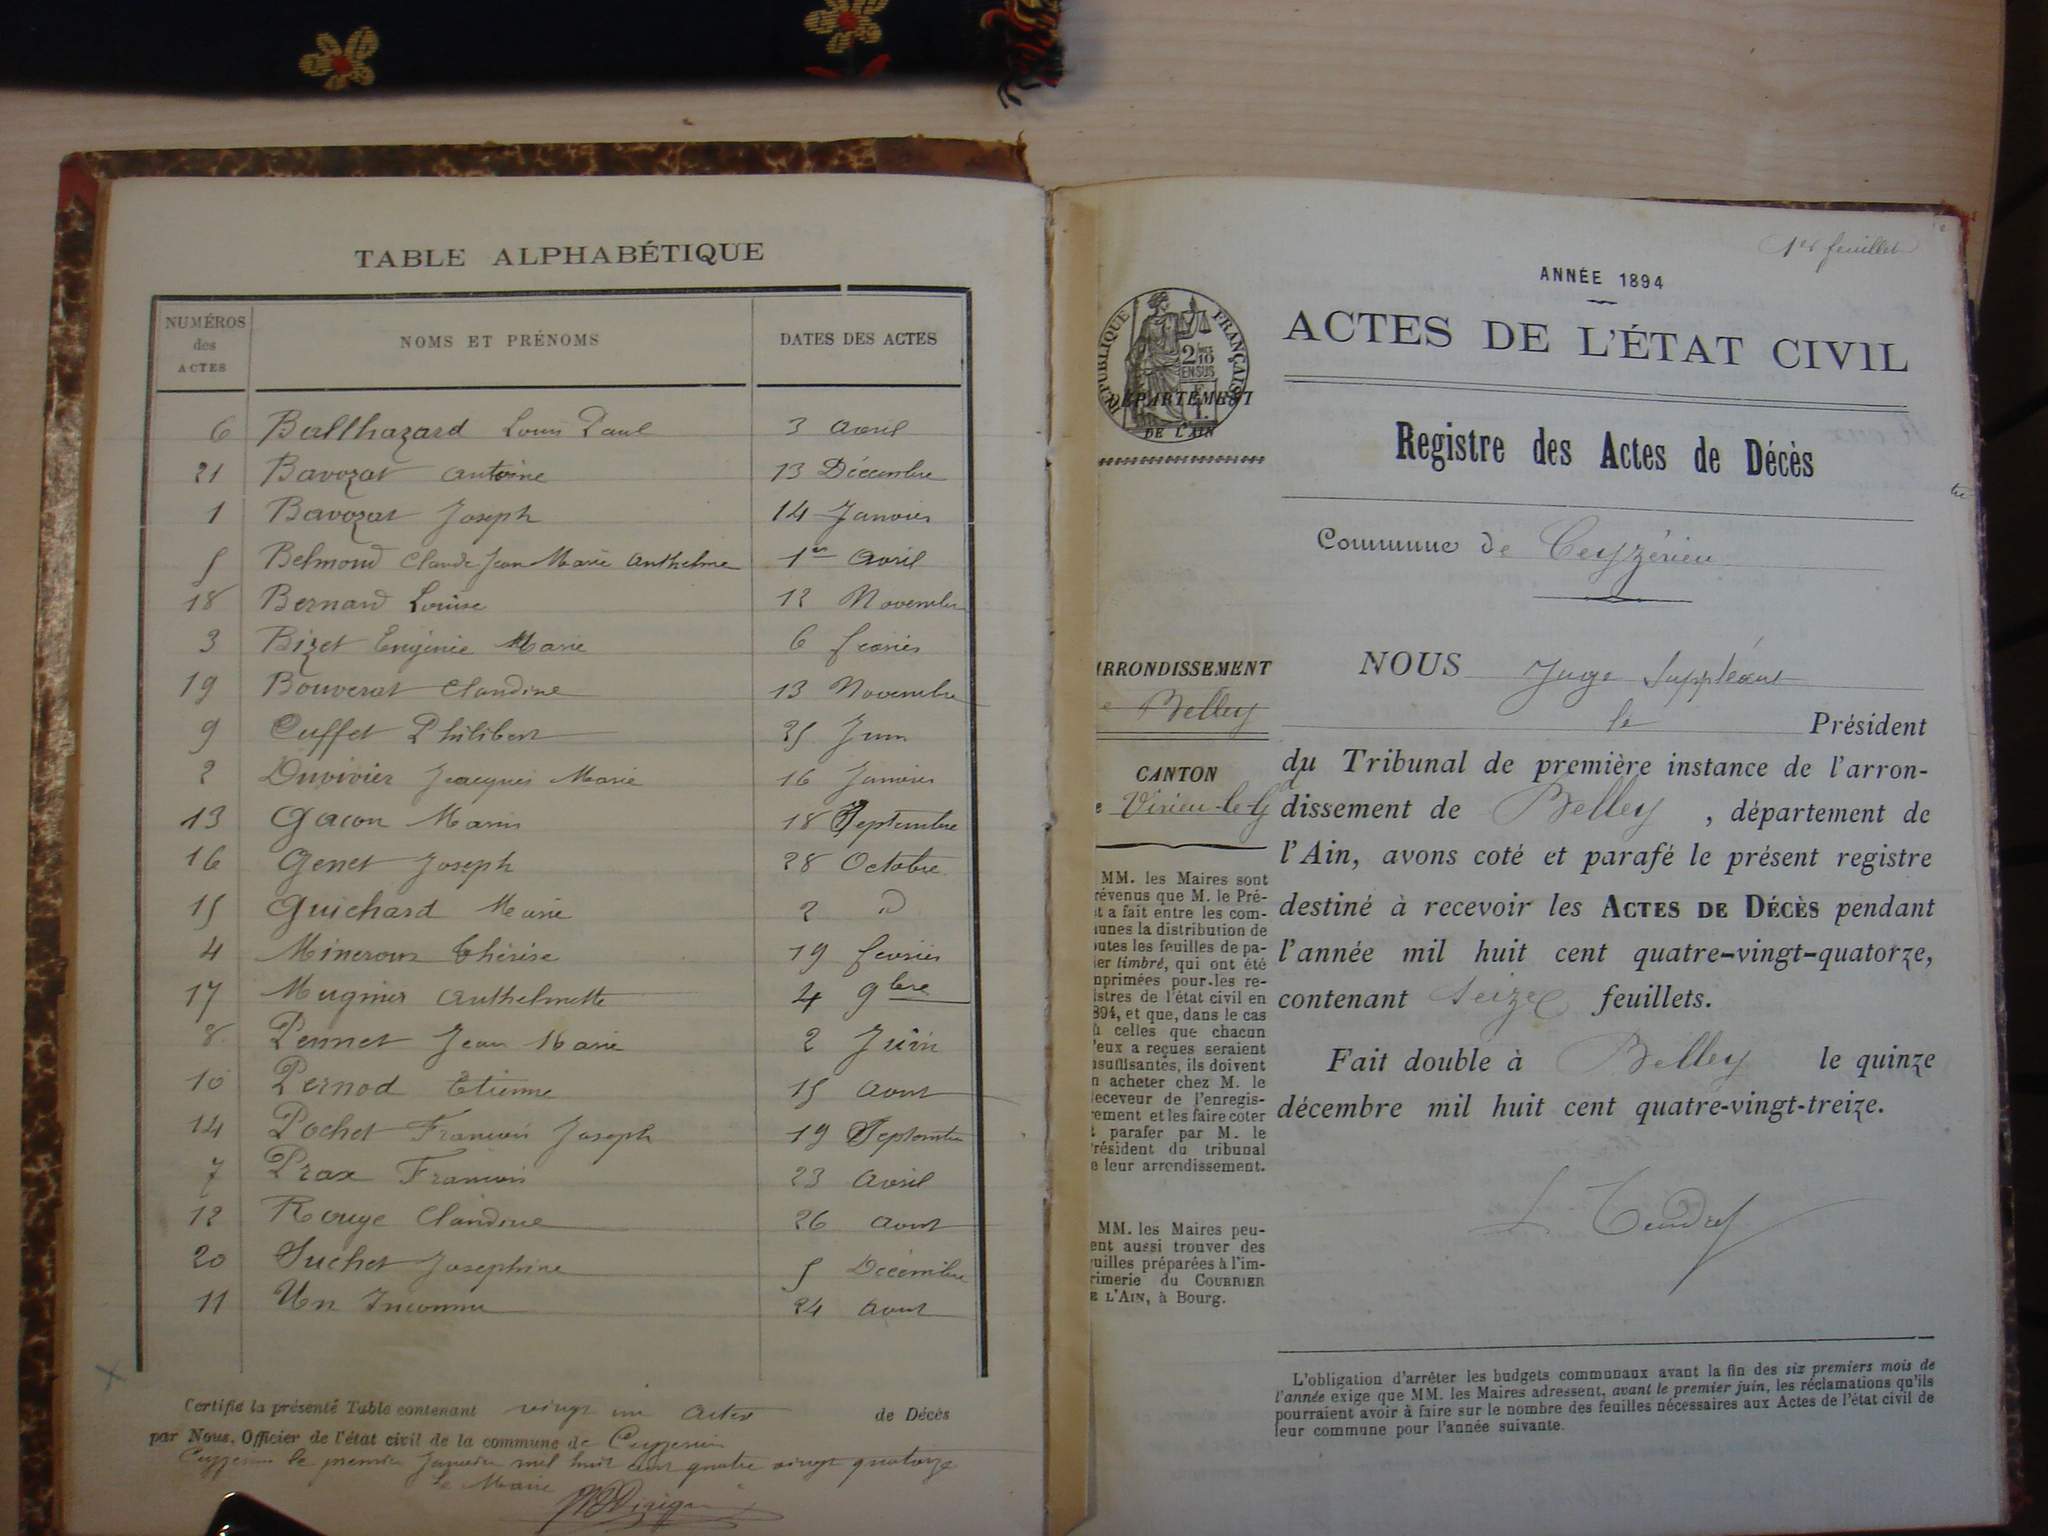 TABLE ALPHABÉTIQUE
NUMÉROS des ACTES NOMS ET PRÉNOMS DATES DES ACTES
6 Balthazard Louis Paul 3 avril
21 Bavozat antoine 13 Décembre
1 Bavozat Joseph 14 Janvier
5 Belmond Claude Jean Marie anthelme 1er avril
18 Bernard Louise 12 Novembre
3 Bizet Eugénie Marie 6 fevrier
19 Bouverat Claudine 13 Novembre
9 Cuffet Philibert 25 Juin
2 Duvivier Jacques Marie 16 Janvier
13 Gacon Marie 18 Septembre
16 Genet Joseph 28 Octobre
15 Guichard Marie 2 d
4 Thérèse 19 fevrier
17 Mugnier anthelmette 4 9bre
8 Pennet Jean Marie 2 Juin
10 Pernod Etienne 15 aout
14 Pochet François Joseph 19 Septembre
7 Prax François 23 avril
12 Rouge Claudine 26 aout
20 Suchet Josephine 5 Décembre
11 Un Inconnu 24 aout
Certifié la présente Table contenant vingt un actes de Décès
par Nous, Officier de l'état civil de la commune de Ceyzerieu
Ceyzerieu le premier Janvier mil huit cent quatre vingt quatorze
Le Maire
1er feuillet
ANNÉE 1894
ACTES DE L'ÉTAT CIVIL
RÉPUBLIQUE FRANÇAISE
2 10
EN SUS
DÉPARTEMENT
DE L'AIN
Registre des Actes de Décès
Commune de Ceyzérieu
ARRONDISSEMENT
e Belley
CANTON
e Virieu-le-Gd
MM. les Maires sont
révenus que M. le Pré-
t a fait entre les com-
unes la distribution de
outes les feuilles de pa-
ier timbré, qui ont été
mprimées pour les re-
istres de l'état civil en
894, et que, dans le cas
ù celles que chacun
'eux a reçues seraient
nsuffisantes, ils doivent
n acheter chez M. le
eceveur de l'enregis-
rement et les faire coter
t parafer par M. le
résident du tribunal
e leur arrondissement.
MM. les Maires peu-
ent aussi trouver des
uilles préparées à l'im-
rimerie du COURRIER
E L'AIN, à Bourg.
NOUS Juge Suppléant
le Président
du Tribunal de première instance de l'arron-
dissement de Belley, département de
l'Ain, avons coté et parafé le présent registre
destiné à recevoir les ACTES DE DÉCÈS pendant
l'année mil huit cent quatre-vingt-quatorze,
contenant Seize feuillets.
Fait double à Belley le quinze
décembre mil huit cent quatre-vingt-treize.
L'obligation d'arrêter les budgets communaux avant la fin des six premiers mois de
l'année exige que MM. les Maires adressent, avant le premier juin, les réclamations qu'ils
pourraient avoir à faire sur le nombre des feuilles nécessaires aux Actes de l'état civil de
leur commune pour l'année suivante.